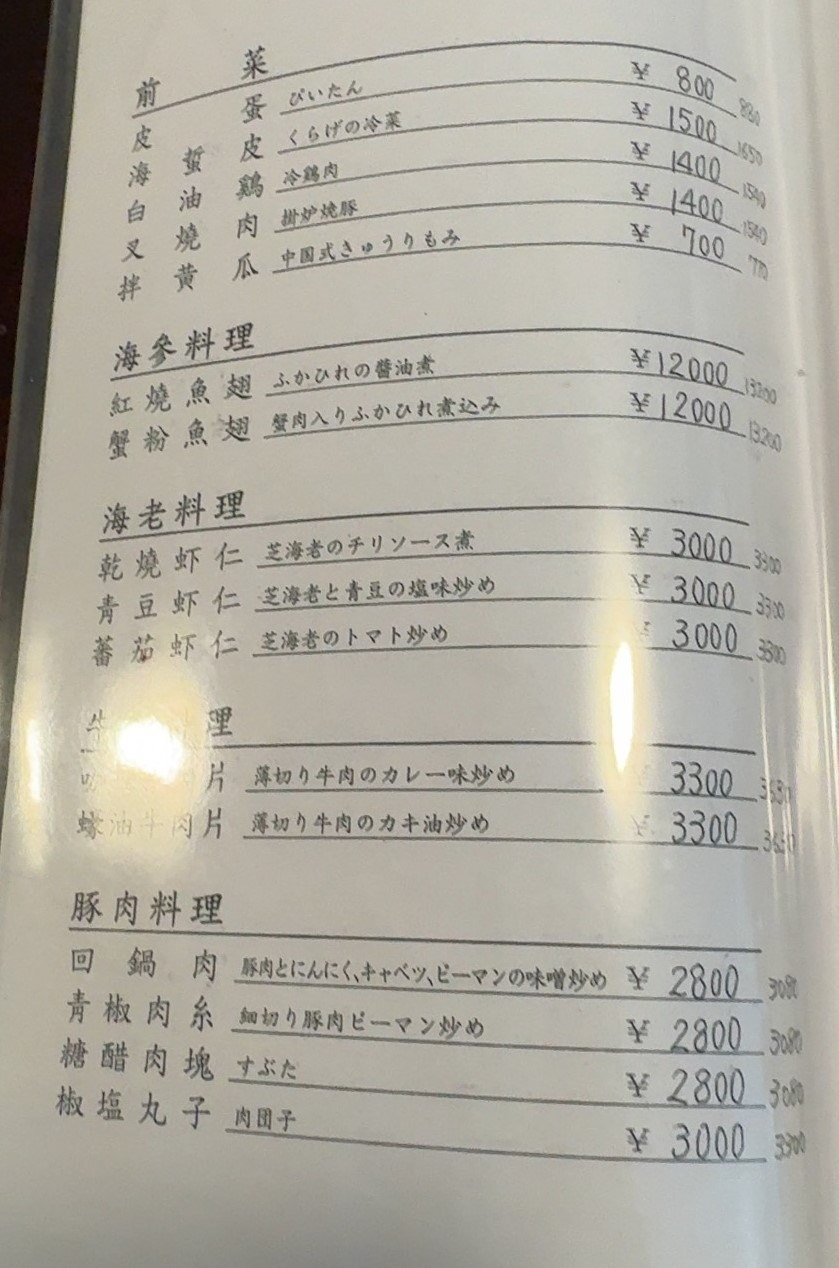 前菜
皮蛋 ぴいたん ¥ 800 880
海蜇皮 くらげの冷菜 ¥ 1500 1650
白油鶏 冷鶏肉 ¥ 1400 1540
叉焼肉 掛炉焼豚 ¥ 1400 1540
拌黄瓜 中国式きゅうりもみ ¥ 700 770
海參料理
紅燒魚翅 ふかひれの醬油煮 ¥ 12000 13200
蟹粉魚翅 蟹肉入りふかひれ煮込み ¥ 12000 13200
海老料理
乾燒虾仁 芝海老のチリソース煮 ¥ 3000 3300
青豆虾仁 芝海老と青豆の塩味炒め ¥ 3000 3300
蕃茄虾仁 芝海老のトマト炒め ¥ 3000 3300
牛 理
片 薄切り牛肉のカレー味炒め ¥ 3300 3630
蠔油牛肉片 薄切り牛肉のカキ油炒め ¥ 3300 3630
豚肉料理
回鍋肉 豚肉とにんにく、キャベツ、ピーマンの味噌炒め ¥ 2800 3080
青椒肉糸 細切り豚肉ピーマン炒め ¥ 2800 3080
糖醋肉塊 すぶた ¥ 2800 3080
椒塩丸子 肉団子 ¥ 3000 3300